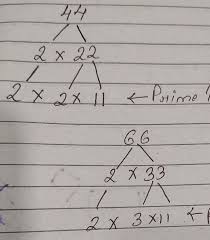 44
2 × 22
2 × 2 × 11 ← Prime
66
2 × 33
2 × 3 × 11 ←